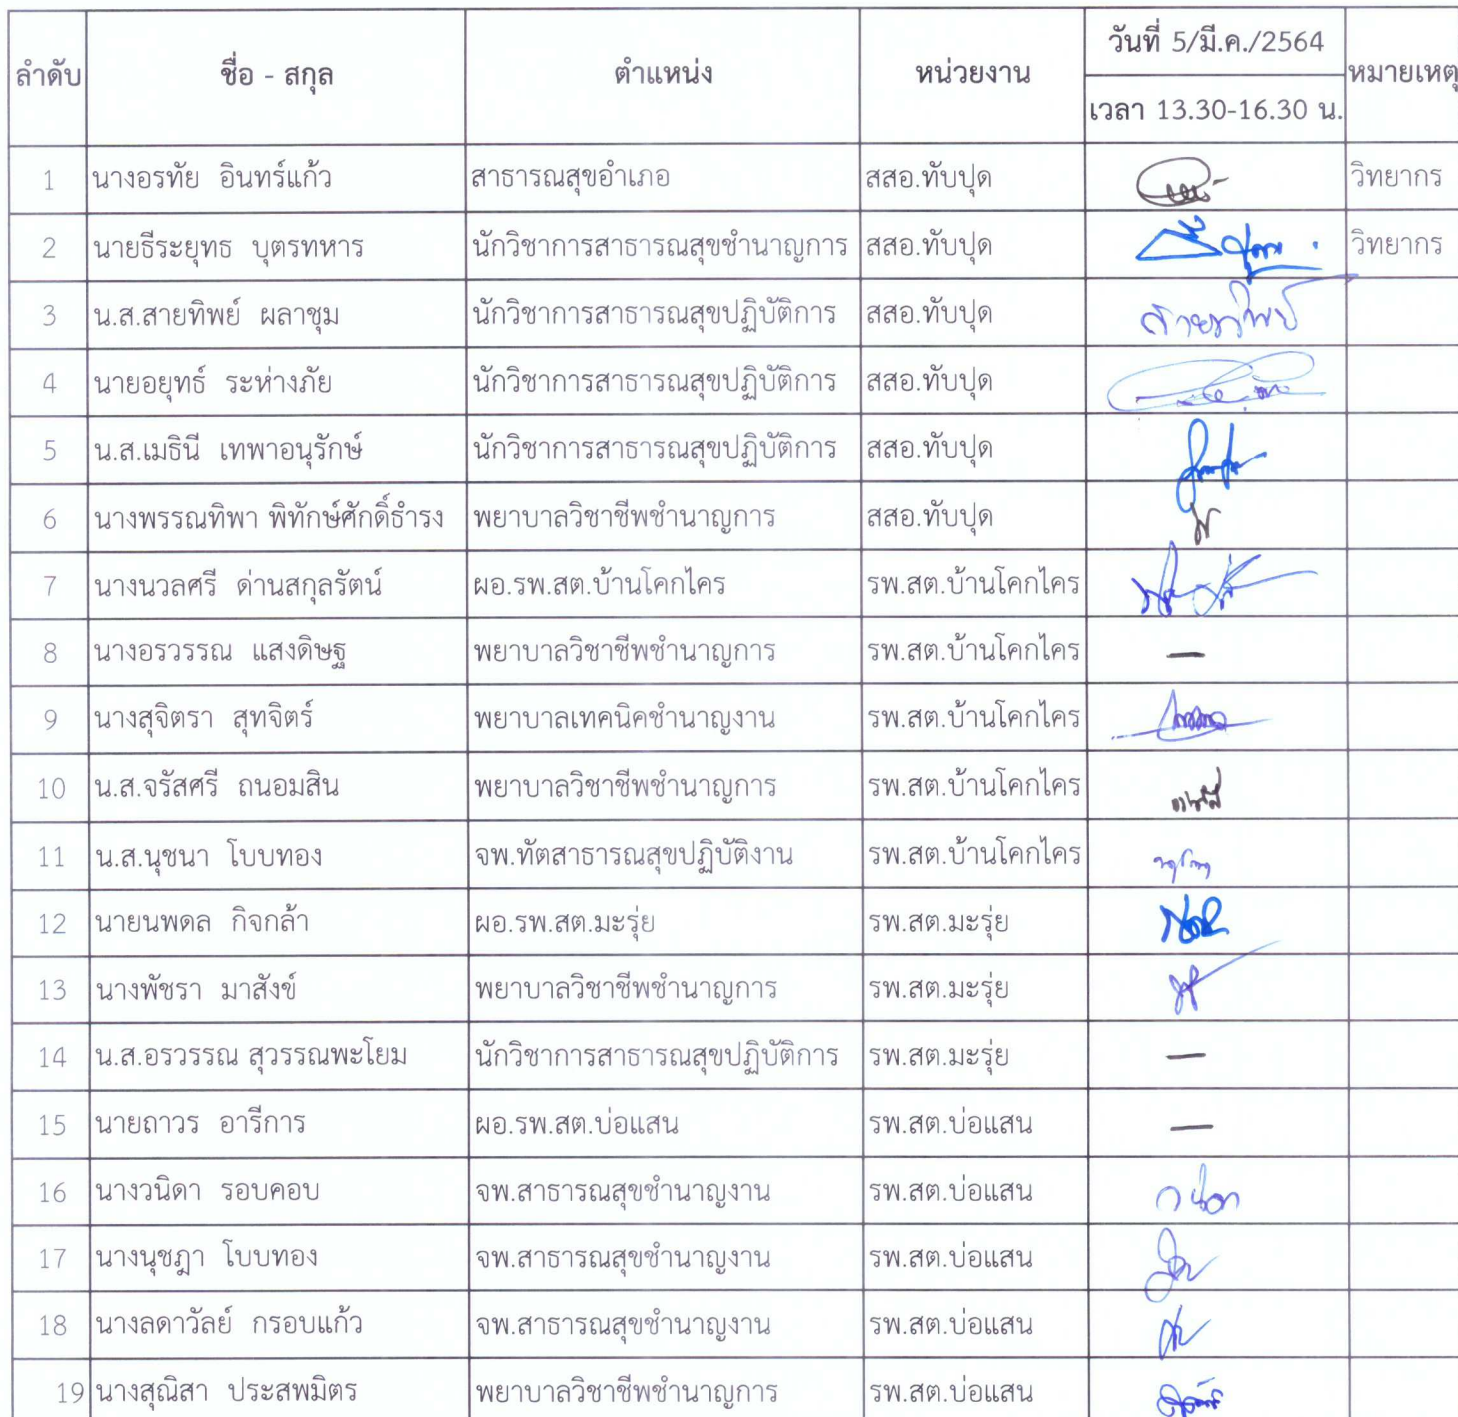 ลำดับ ชื่อ - สกุล ตำแหน่ง หน่วยงาน วันที่ 5/มี.ค./2564 หมายเหตุ
เวลา 13.30-16.30 น.
1 นางอรทัย อินทร์แก้ว สาธารณสุขอำเภอ สสอ.ทับปุด วิทยากร
2 นายธีระยุทธ บุตรทหาร นักวิชาการสาธารณสุขชำนาญการ สสอ.ทับปุด วิทยากร
3 น.ส.สายทิพย์ ผลาชุม นักวิชาการสาธารณสุขปฏิบัติการ สสอ.ทับปุด สายทิพย์
4 นายอยุทธ์ ระห่างภัย นักวิชาการสาธารณสุขปฏิบัติการ สสอ.ทับปุด
5 น.ส.เมธินี เทพาอนุรักษ์ นักวิชาการสาธารณสุขปฏิบัติการ สสอ.ทับปุด
6 นางพรรณทิพา พิทักษ์ศักดิ์ธำรง พยาบาลวิชาชีพชำนาญการ สสอ.ทับปุด
7 นางนวลศรี ด่านสกุลรัตน์ ผอ.รพ.สต.บ้านโคกไคร รพ.สต.บ้านโคกไคร
8 นางอรวรรณ แสงดิษฐ พยาบาลวิชาชีพชำนาญการ รพ.สต.บ้านโคกไคร —
9 นางสุจิตรา สุทจิตร์ พยาบาลเทคนิคชำนาญงาน รพ.สต.บ้านโคกไคร
10 น.ส.จรัสศรี ถนอมสิน พยาบาลวิชาชีพชำนาญการ รพ.สต.บ้านโคกไคร
11 น.ส.นุชนา โบบทอง จพ.ทัตสาธารณสุขปฏิบัติงาน รพ.สต.บ้านโคกไคร
12 นายนพดล กิจกล้า ผอ.รพ.สต.มะรุ่ย รพ.สต.มะรุ่ย
13 นางพัชรา มาสังข์ พยาบาลวิชาชีพชำนาญการ รพ.สต.มะรุ่ย
14 น.ส.อรวรรณ สุวรรณพะโยม นักวิชาการสาธารณสุขปฏิบัติการ รพ.สต.มะรุ่ย —
15 นายถาวร อารีการ ผอ.รพ.สต.บ่อแสน รพ.สต.บ่อแสน —
16 นางวนิดา รอบคอบ จพ.สาธารณสุขชำนาญงาน รพ.สต.บ่อแสน วนิดา
17 นางนุชฎา โบบทอง จพ.สาธารณสุขชำนาญงาน รพ.สต.บ่อแสน
18 นางลดาวัลย์ กรอบแก้ว จพ.สาธารณสุขชำนาญงาน รพ.สต.บ่อแสน
19 นางสุณิสา ประสพมิตร พยาบาลวิชาชีพชำนาญการ รพ.สต.บ่อแสน